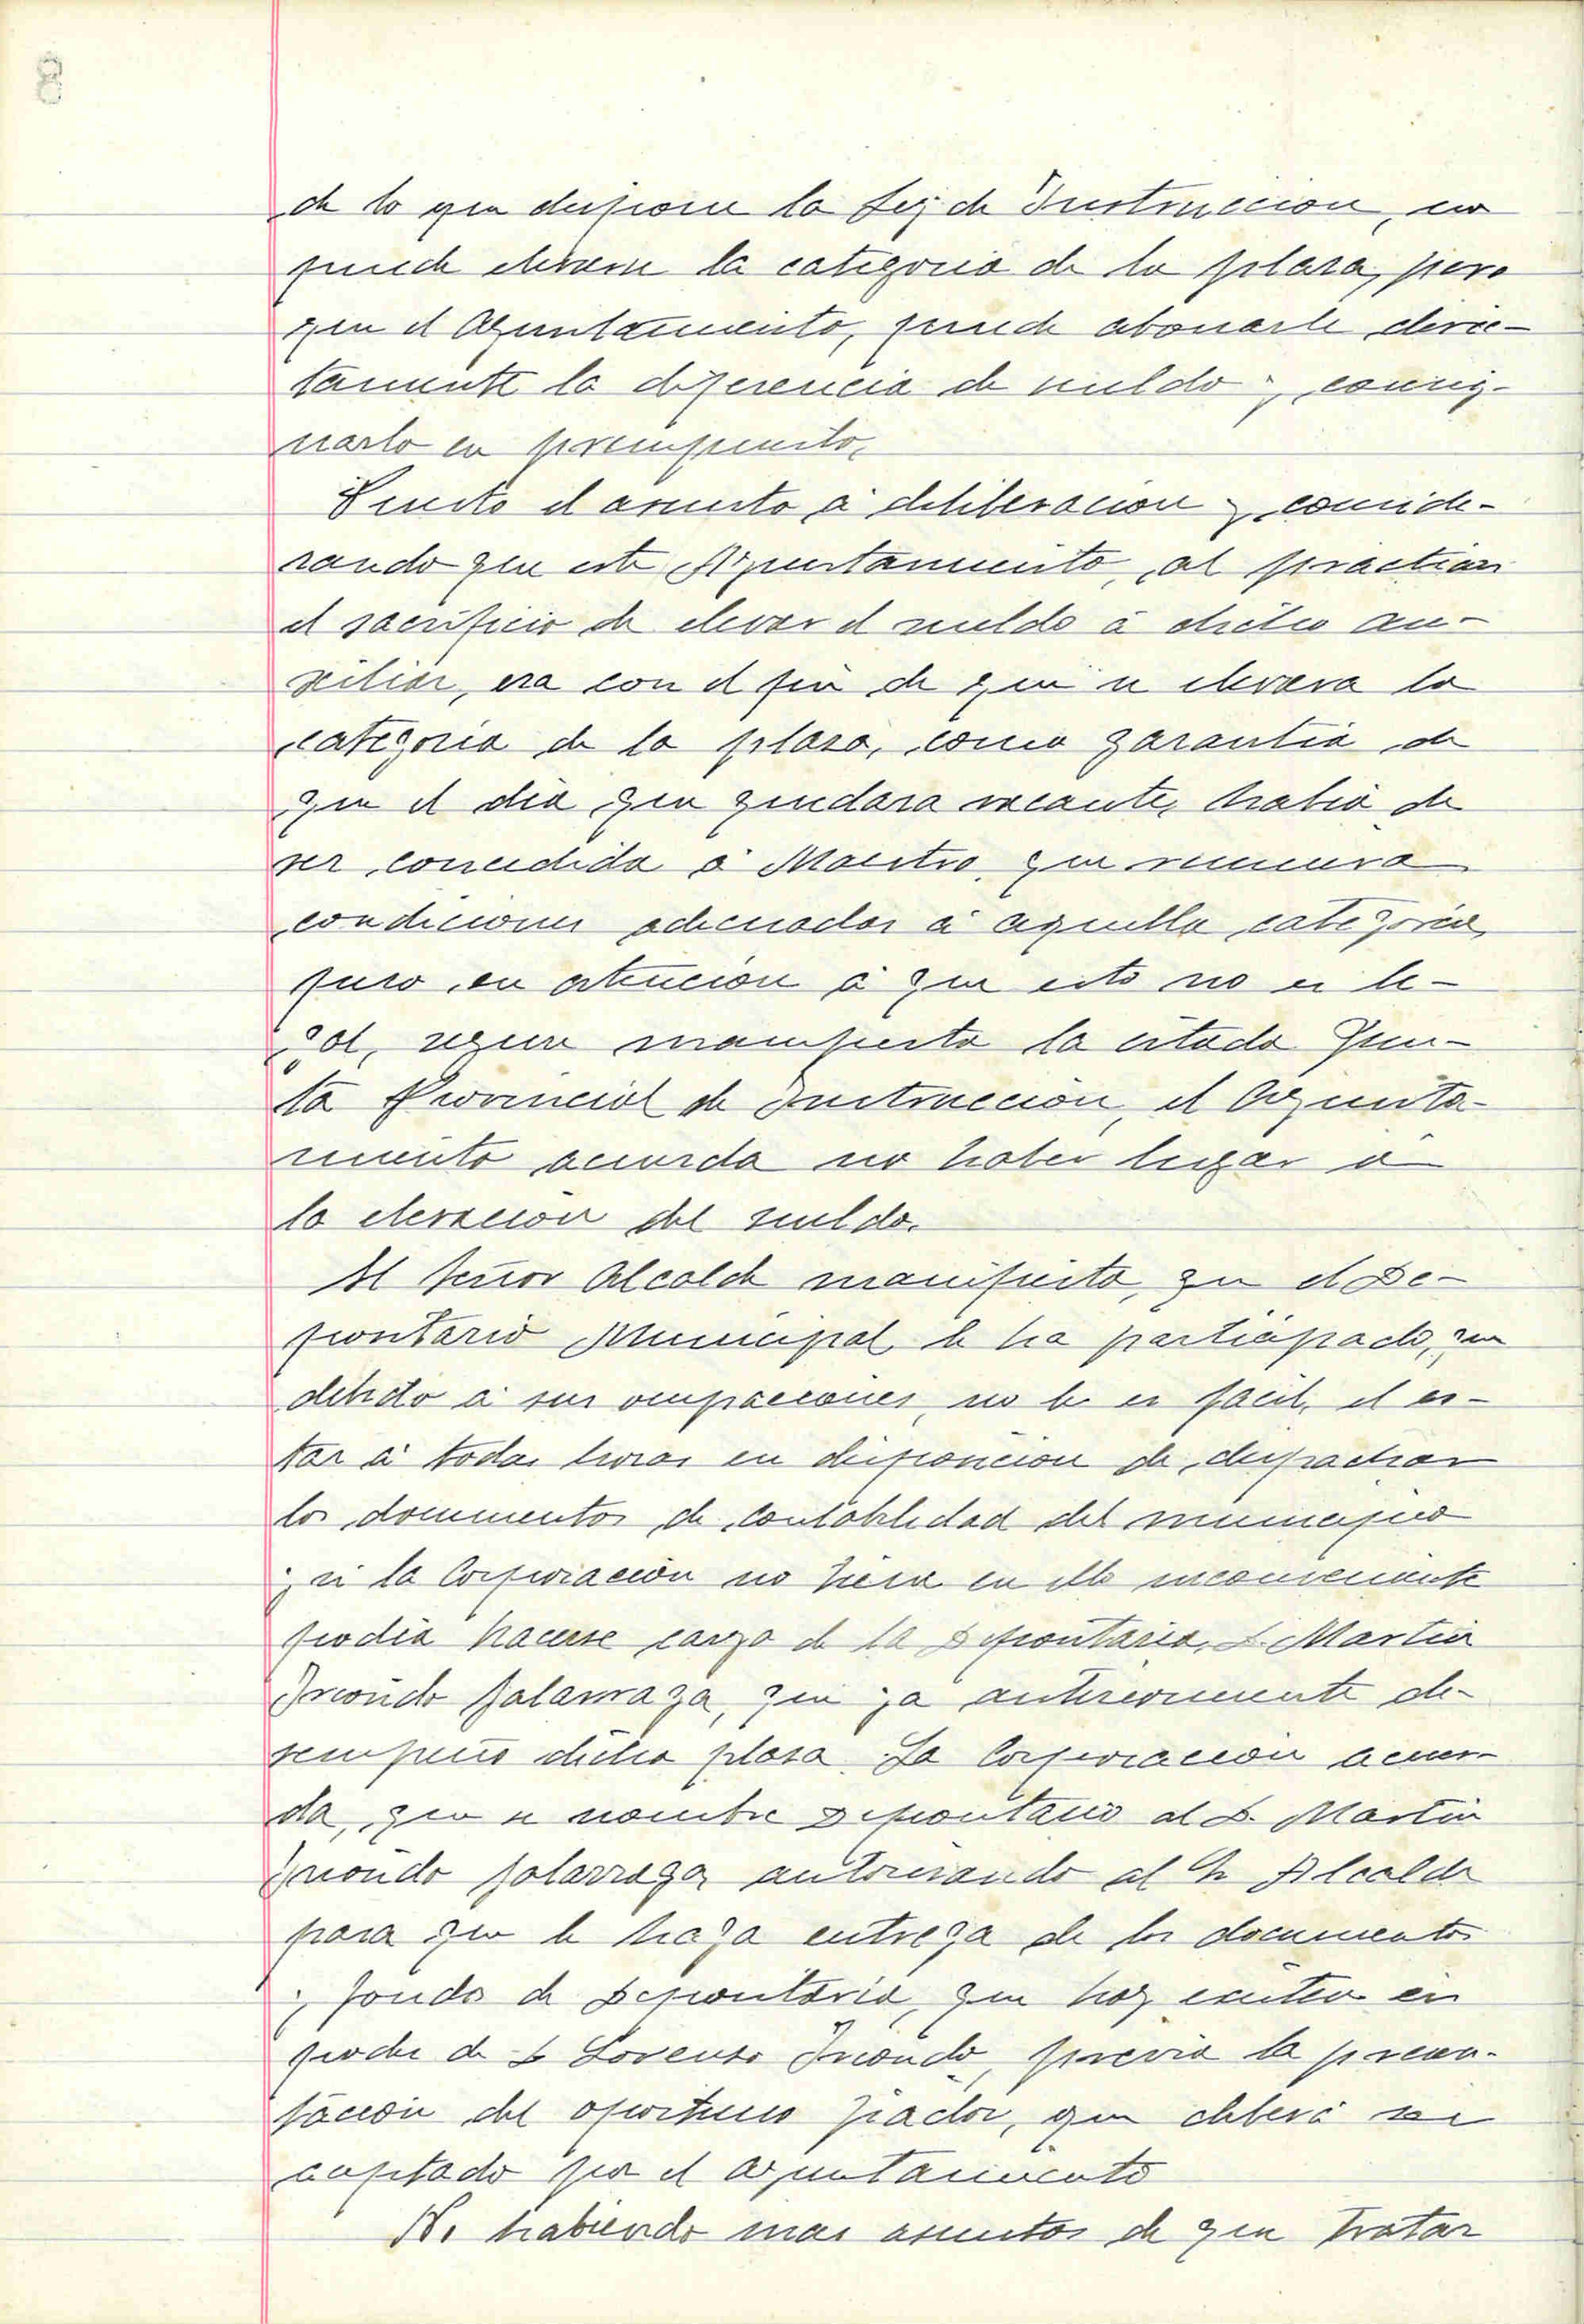 de lo que dispone la Ley de Instruccion, no
puede elevarse la categoria de la plaza, pero
que el Ayuntamiento, puede abonarle direc-
tamente la diferencia de sueldo y consig-
narlo en presupuesto.
Puesto el asunto á deliberacion y conside-
rando que este Ayuntamiento, al practicar
el sacrificio de elevar el sueldo á dicho au-
xiliar, era con el fin de que se elevara la
categoria de la plaza, como garantia de
que el dia que quedara vacante, habia de
ser concedida á Maestro que reuniera
condiciones adecuadas á aquella categoria,
pero, en atencion á que esto no es le-
gal, segun manifiesta la citada Jun-
ta Provincial de Instruccion, el Ayunta-
miento acuerda no haber lugar á
la elevacion del sueldo.
El Señor Alcalde manifiesta, que el De-
positario Municipal le ha participado, que
debido á sus ocupaciones, no le es facil, el es-
tar á todas horas en disposicion de despachar
los documentos de contabilidad del municipio
y si la Corporacion no viera en ello inconveniente
podia hacerse cargo de la Depositaria, D. Martin
Iriondo Galarraga, que ya anteriormente de-
sempeño dicha plaza. La Corporacion acuer-
da, que se nombre Depositario al D. Martin
Iriondo Galarraga, autorizando al Sr Alcalde
para que le haga entrega de los documentos
y fondos de Depositaria, que hoy existen en
poder de D Lorenzo Iriondo, previa la presen-
tacion del oportuno fiador, que deberá ser
aceptado por el Ayuntamiento
No habiendo mas asuntos de que tratar